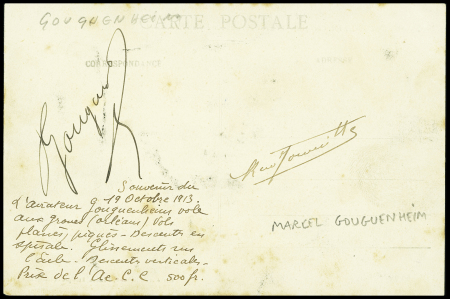 GOUGUENHEIM
CARTE POSTALE
CORRESPONDANCE
Gouguen
Souvenir du
L'aviateur g 19 Octobre 1913
Gouguenheim vole
aux groues (orléans) Vols
planés, piqués - Descente en
spirale. Glissements sur
l'aile. Descentes verticales.
Prix de l'Ae. C. C. 500 fr.
MARCEL GOUGUENHEIM